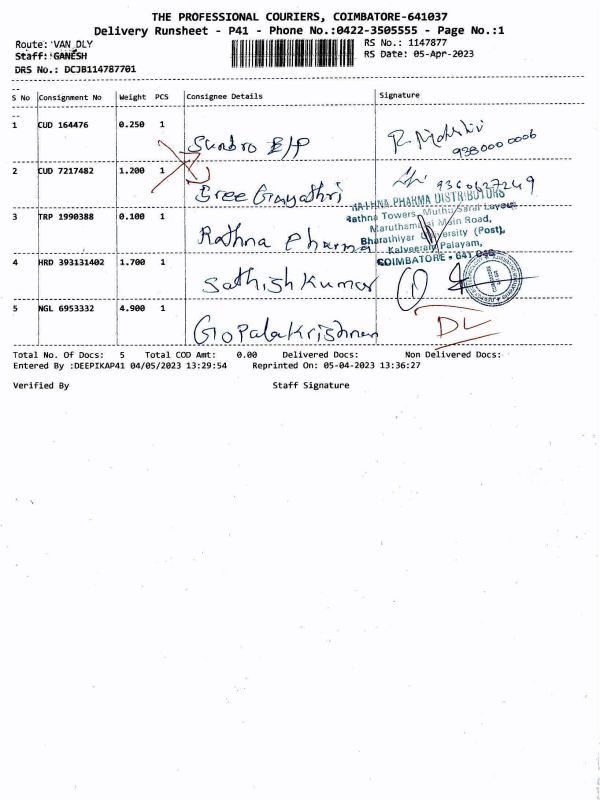 THE PROFESSIONAL COURIERS, COIMBATORE-641037
Delivery Runsheet - P41 - Phone No.:0422-3505555 - Page No.:1
Route: VAN DLY RS No.: 1147877
Staff: GANESH RS Date: 05-Apr-2023
DRS No.: DCJB114787701
S No Consignment No Weight PCS Consignee Details Signature
1 CUD 164476 0.250 1 Sunbro E/P
9380000006
2 CUD 7217482 1.200 1 Sree Gayathri 9360627249
3 TRP 1990388 0.100 1 Rathna Pharma
RATHNA PHARMA DISTRIBUTORS
Rathna Towers, Muthu Layout
Maruthamalai Main Road,
Bharathiyar University (Post),
Kalveerampalayam,
COIMBATORE - 641 046
4 HRD 393131402 1.700 1 Sathish Kumar
5 NGL 6953332 4.900 1 Gopalakrishnan DL
Total No. Of Docs: 5 Total COD Amt: 0.00 Delivered Docs: Non Delivered Docs:
Entered By :DEEPIKAP41 04/05/2023 13:29:54 Reprinted On: 05-04-2023 13:36:27
Verified By Staff Signature